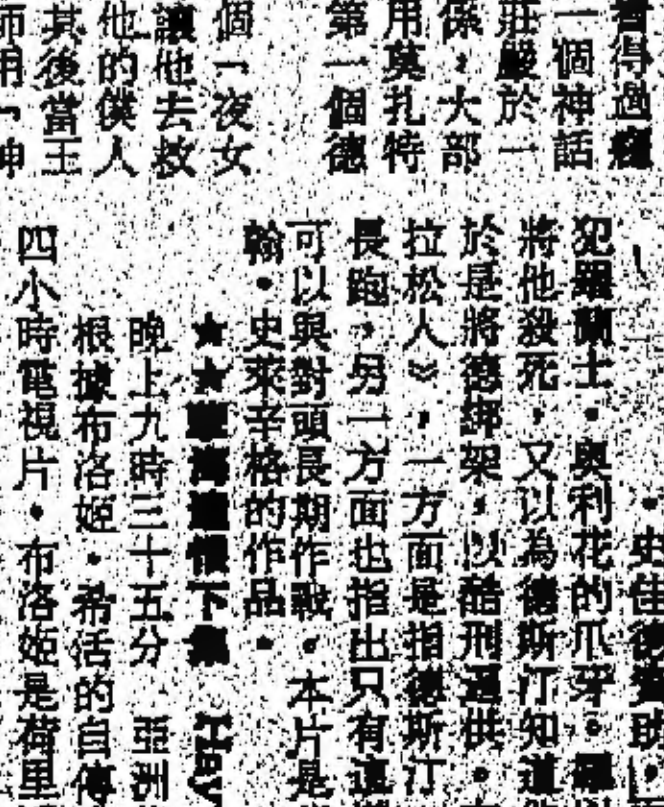 得過
一個神話
莊嚴於一
係，大部
用莫扎特
第一個德
個「夜女
讓他去救
他的僕人
其後當王
師用「神
史佳德
犯羅蘭士·奧利花的爪牙。
將他殺死，又以為德斯汀知道
於是將德綁架，以酷刑逼供。
拉松人》，一方面是指德斯汀
長跑，另一方面也指出只有這
可以與對頭長期作戰。本片是
翰·史萊辛格的作品。
★★ 下集 Hay
晚上九時三十五分 亞洲
根據布洛姬·希活的自傳
四小時電視片。布洛姬是荷里